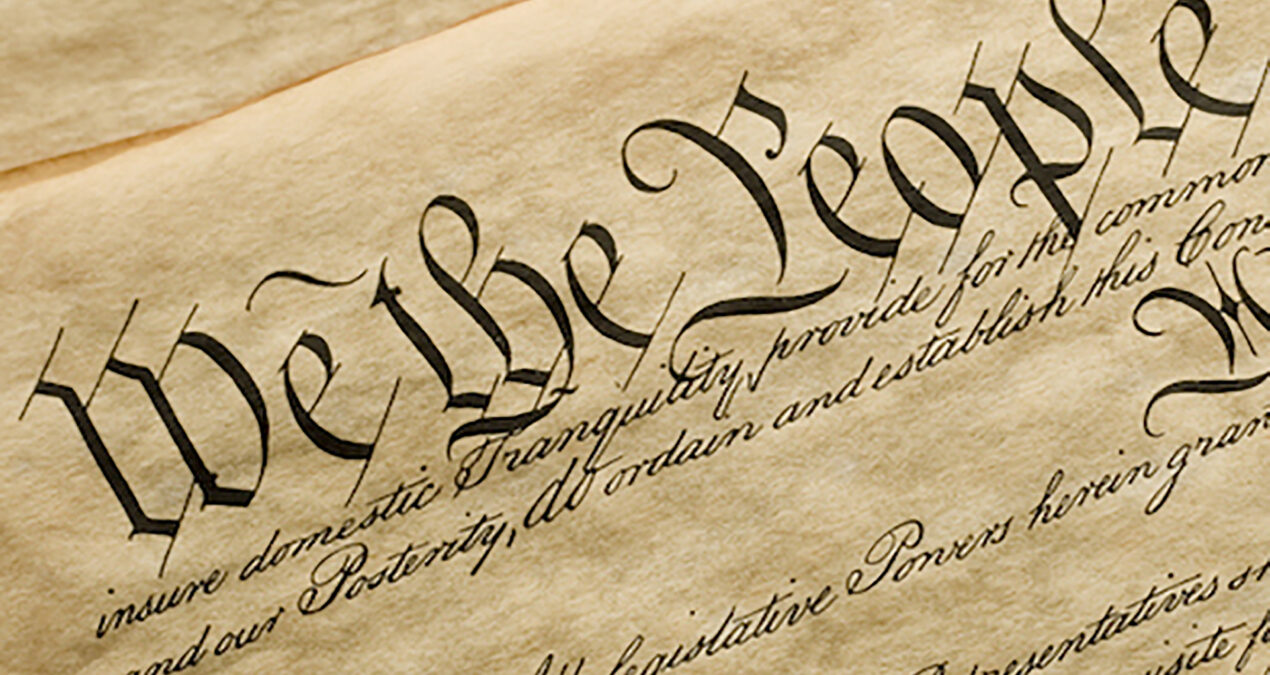 We the People
insure domestic Tranquility, provide for the common
and our Posterity, do ordain and establish this Cons
legislative Powers herein gran
presentatives